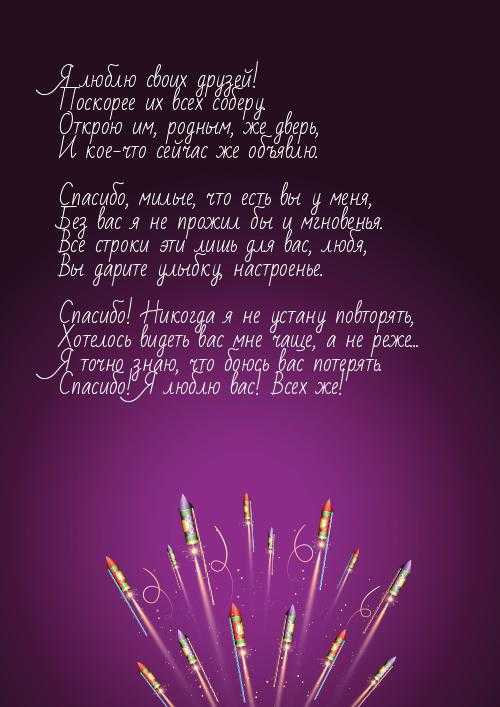 Я люблю своих друзей!
Поскорее их всех соберу.
Открою им, родным, же дверь,
И кое-что сейчас же объявлю.
Спасибо, милые, что есть вы у меня,
Без вас я не прожил бы и мгновенья.
Все строки эти лишь для вас, любя,
Вы дарите улыбку, настроенье.
Спасибо! Никогда я не устану повторять,
Хотелось видеть вас мне чаще, а не реже...
Я точно знаю, что боюсь вас потерять.
Спасибо! Я люблю вас! Всех же!